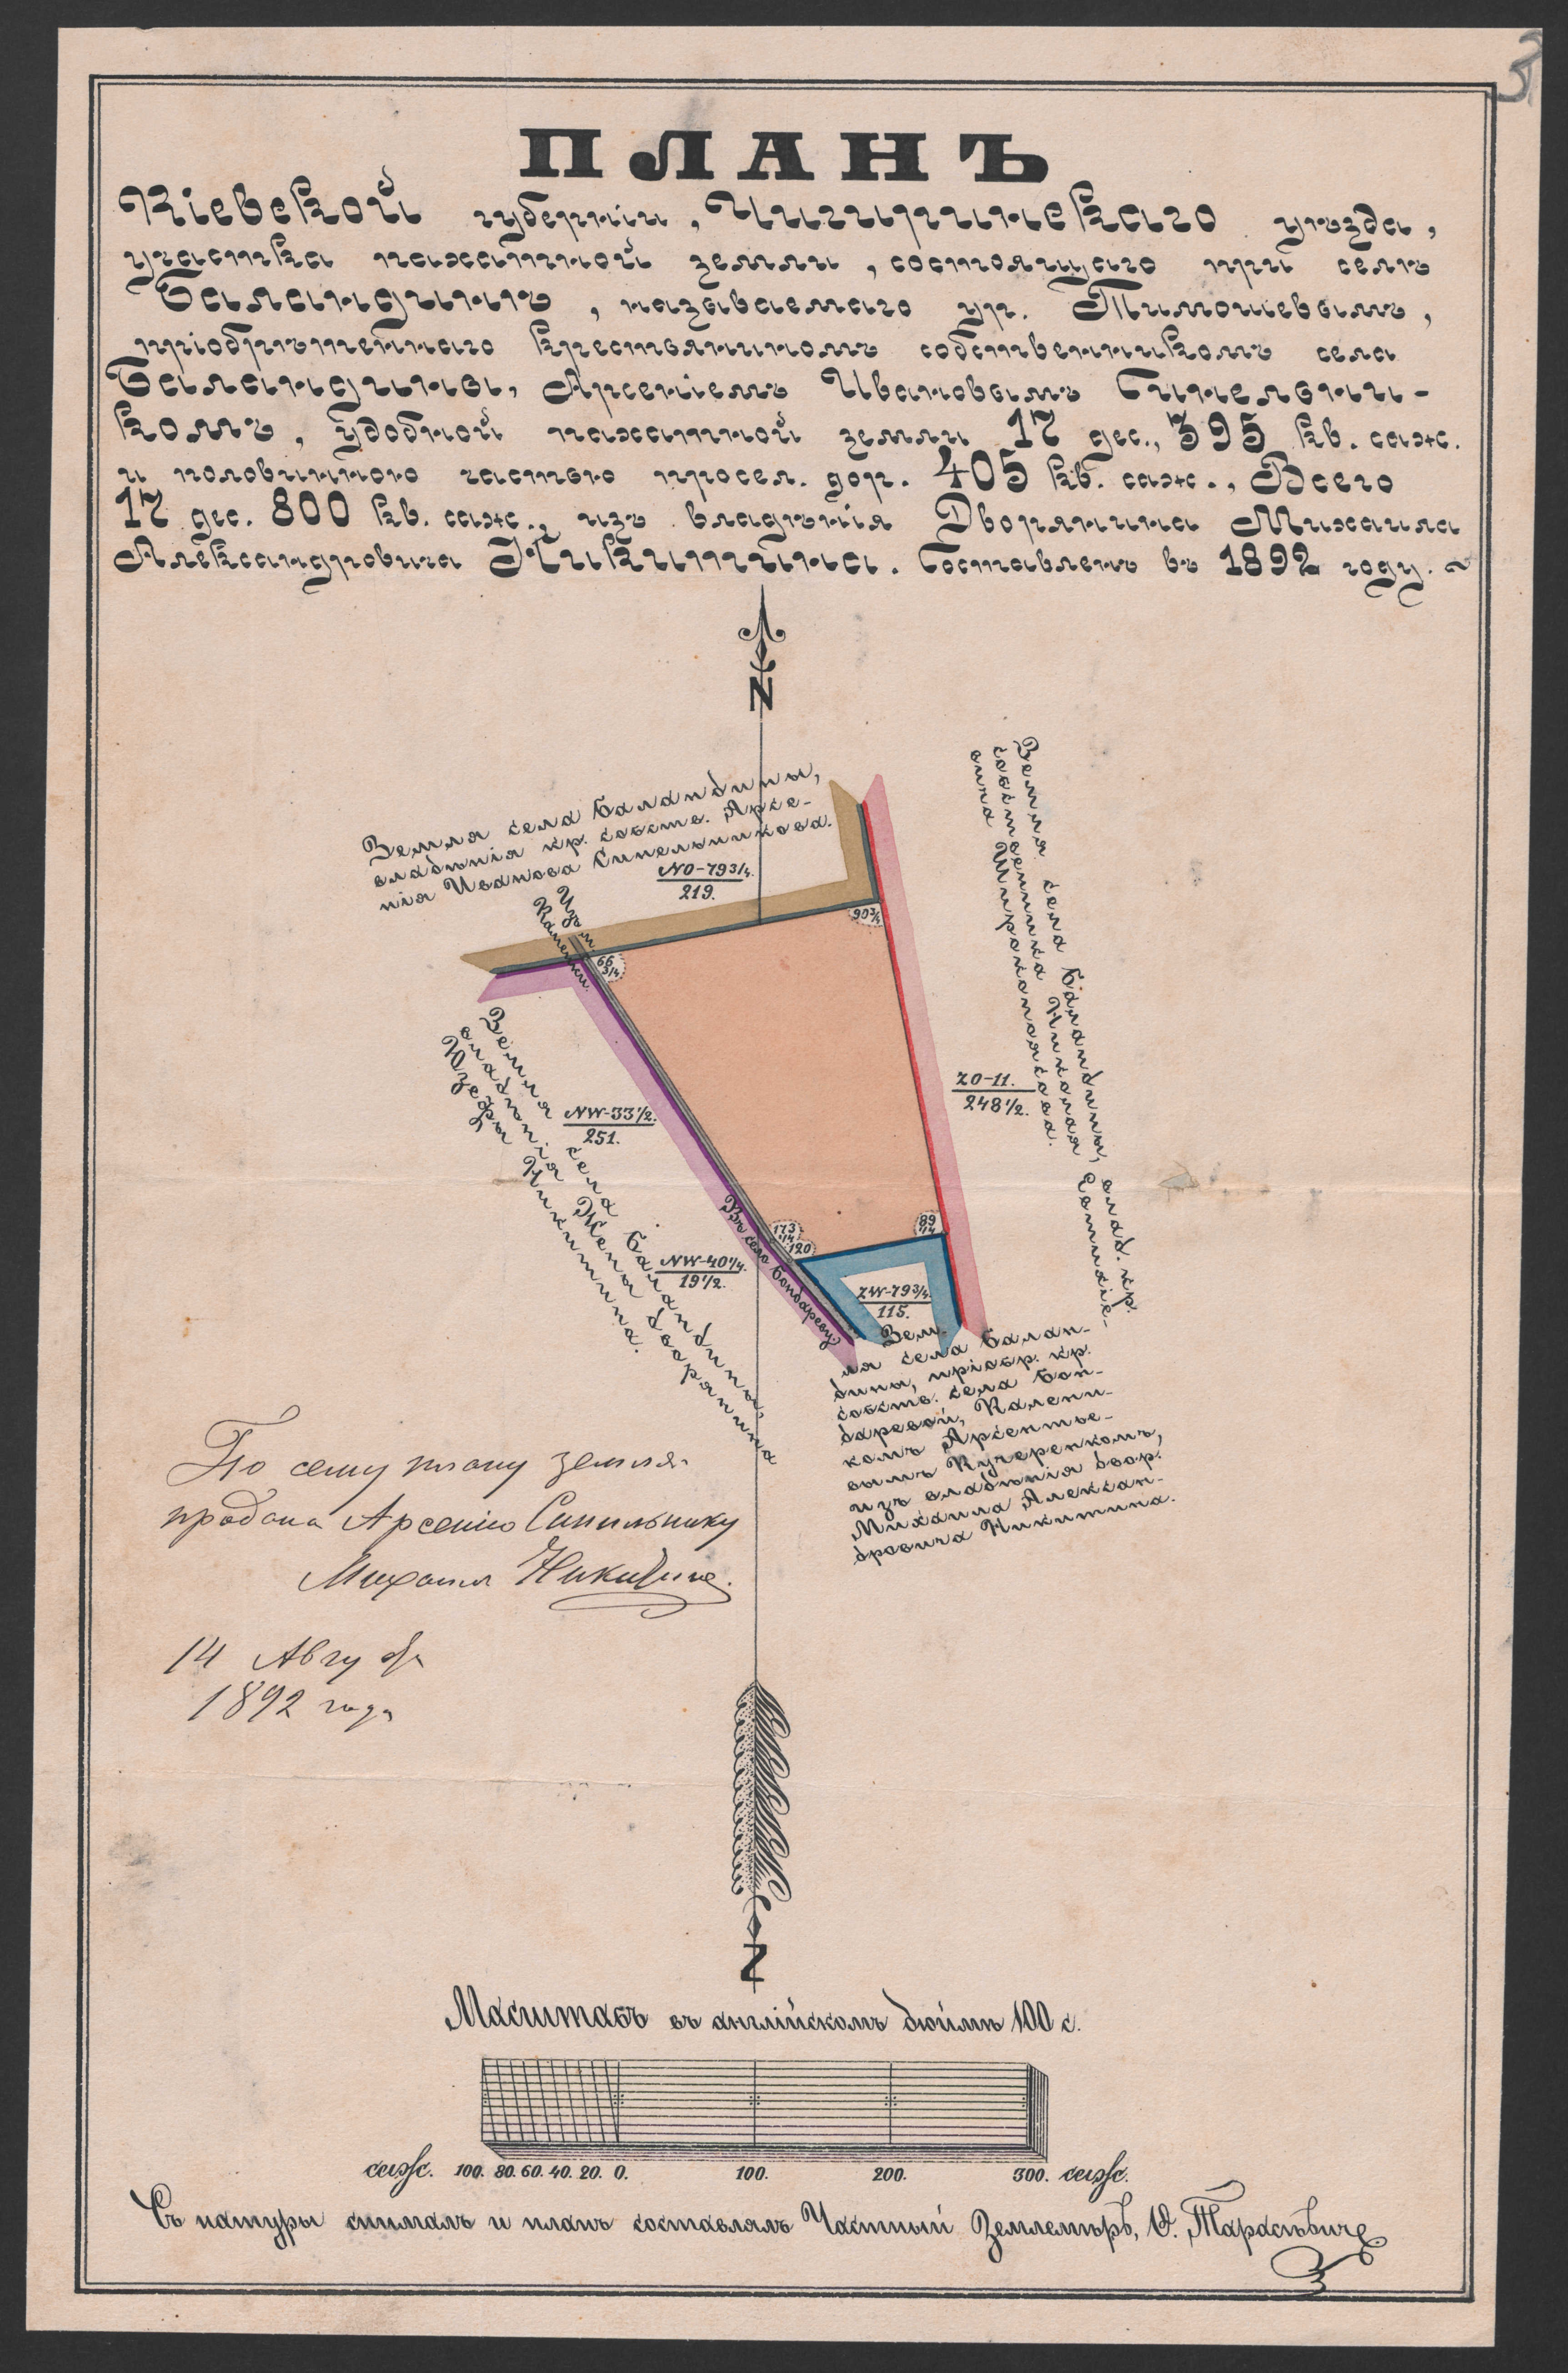 ПЛАНЪ
Кіевской губерніи, Чигиринскаго уѣзда,
участка пахатной земли, состоящаго при селѣ
Баландинѣ, называемаго ур. Тимошевымъ,
пріобрѣтеннаго крестьяниномъ собственникомъ села
Баландины, Арсеніемъ Ивановымъ Синельни-
комъ, удобной пахатной земли 17 дес., 395 кв. саж.
и половинною частью просел. дор. 405 кв. саж., Всего
17 дес. 800 кв. саж., изъ владѣнія Дворянина Михаила
Александровича Никитина. Составленъ въ 1892 году.
N
Земля села Баландины,
владѣнія кр. собств. Арсе-
нія Иванова Синельникова.
NO-79 3/4.
219.
Изъ м.
Каменки.
66 3/4
90 3/4
Земля села Баландины, влад. кр.
собственника Николая Евтихіе-
вича Широкопоясова.
ZO-11.
248 1/2.
Земля села Баландины,
владѣнія Жены дворянина
Юзефы Никитина.
NW-33 1/2.
251.
NW-40 1/4.
19 1/2.
Въ село Бондареву.
173 1/4
120
89 1/4
ZW-79 3/4.
115.
Зем-
ля села Балан-
дины, пріобр. кр.
собств. села Бон-
даревой, Калени-
комъ Арсентье-
вымъ Кучеренкомъ,
изъ владѣнія двор.
Михаила Алексан-
дровича Никитина.
По сему плану земля
продана Арсенію Синельнику
Михаилъ Никитинъ.
14 Августа
1892 года
Z
Масштабъ въ англійскомъ дюймѣ 100 с.
саж. 100. 80. 60. 40. 20. 0. 100. 200. 300. саж.
Съ натуры снималъ и планъ составлялъ Частный Землемѣръ, Ѳ. Тарасѣвичъ